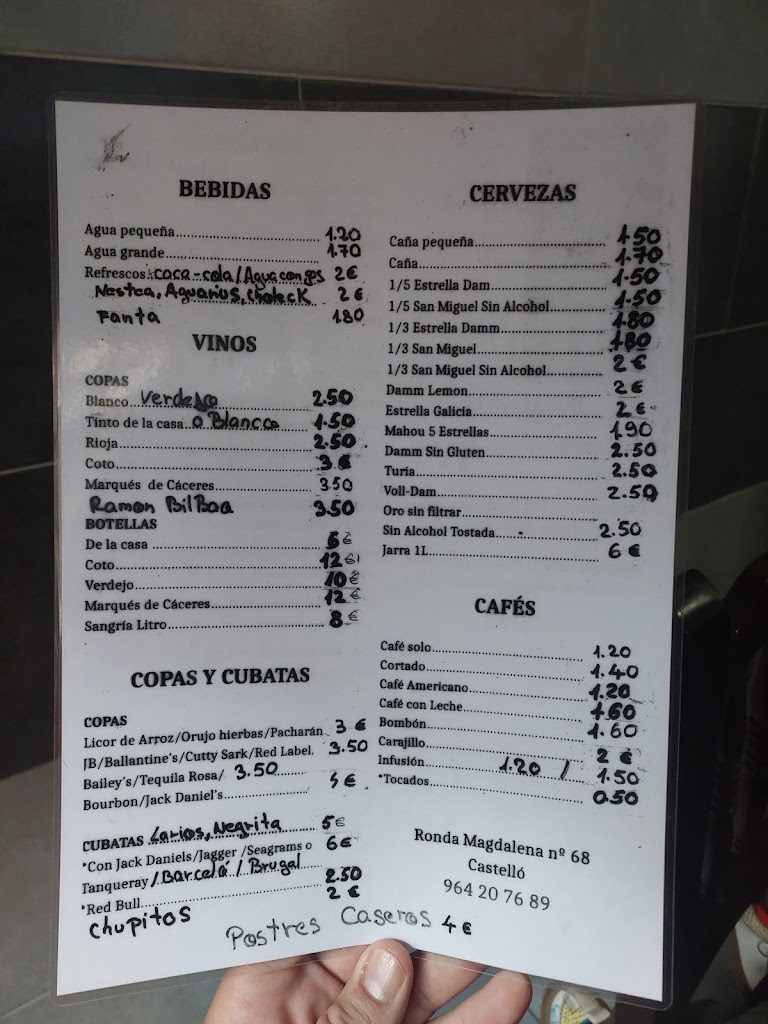 BEBIDAS
Agua pequeña 1.20
Agua grande 1.70
Refrescos: coca-cola/Agua con gas 2€
Nestea, Aquarius, Choleck 2€
Fanta 1.80
VINOS
COPAS
Blanco Verdejo 2.50
Tinto de la casa o Blanco 1.50
Rioja 2.50
Coto 3€
Marqués de Cáceres 3.50
Ramon BilBao 3.50
BOTELLAS
De la casa 6€
Coto 12€
Verdejo 10€
Marqués de Cáceres 12€
Sangría Litro 8€
COPAS Y CUBATAS
COPAS
Licor de Arroz/Orujo hierbas/Pacharán 3€
JB/Ballantine's/Cutty Sark/Red Label. 3.50
Bailey's/Tequila Rosa/ 3.50
Bourbon/Jack Daniel's
CUBATAS Larios, Negrita 5€
*Con Jack Daniels/Jagger /Seagrams o 6€
Tanqueray/Barceló/Brugal
*Red Bull 2.50
Chupitos 2€
Postres Caseros 4€
CERVEZAS
Caña pequeña 1.50
Caña 1.70
1/5 Estrella Dam 1.50
1/5 San Miguel Sin Alcohol 1.50
1/3 Estrella Damm 1.80
1/3 San Miguel 1.80
1/3 San Miguel Sin Alcohol 2€
Damm Lemon 2€
Estrella Galicia 2€
Mahou 5 Estrellas 1.90
Damm Sin Gluten 2.50
Turia 2.50
Voll-Dam 2.50
Oro sin filtrar
Sin Alcohol Tostada 2.50
Jarra 1L 6€
CAFÉS
Café solo 1.20
Cortado 1.40
Café Americano 1.20
Café con Leche 1.60
Bombón 1.60
Carajillo 2€
Infusión 1.20 / 1.50
*Tocados 0.50
Ronda Magdalena nº 68
Castelló
964 20 76 89